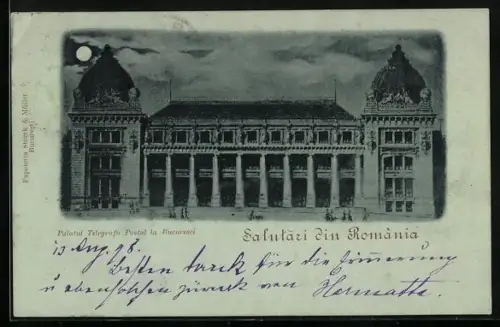 Papeteria Storck & Müller
Bucuresti
Palatul Telegrafo Postal la Bucuresci
Salutări din România
13 Aug. 98.
Besten Dank für die Erinnerung
u. ebensolchen zurück von